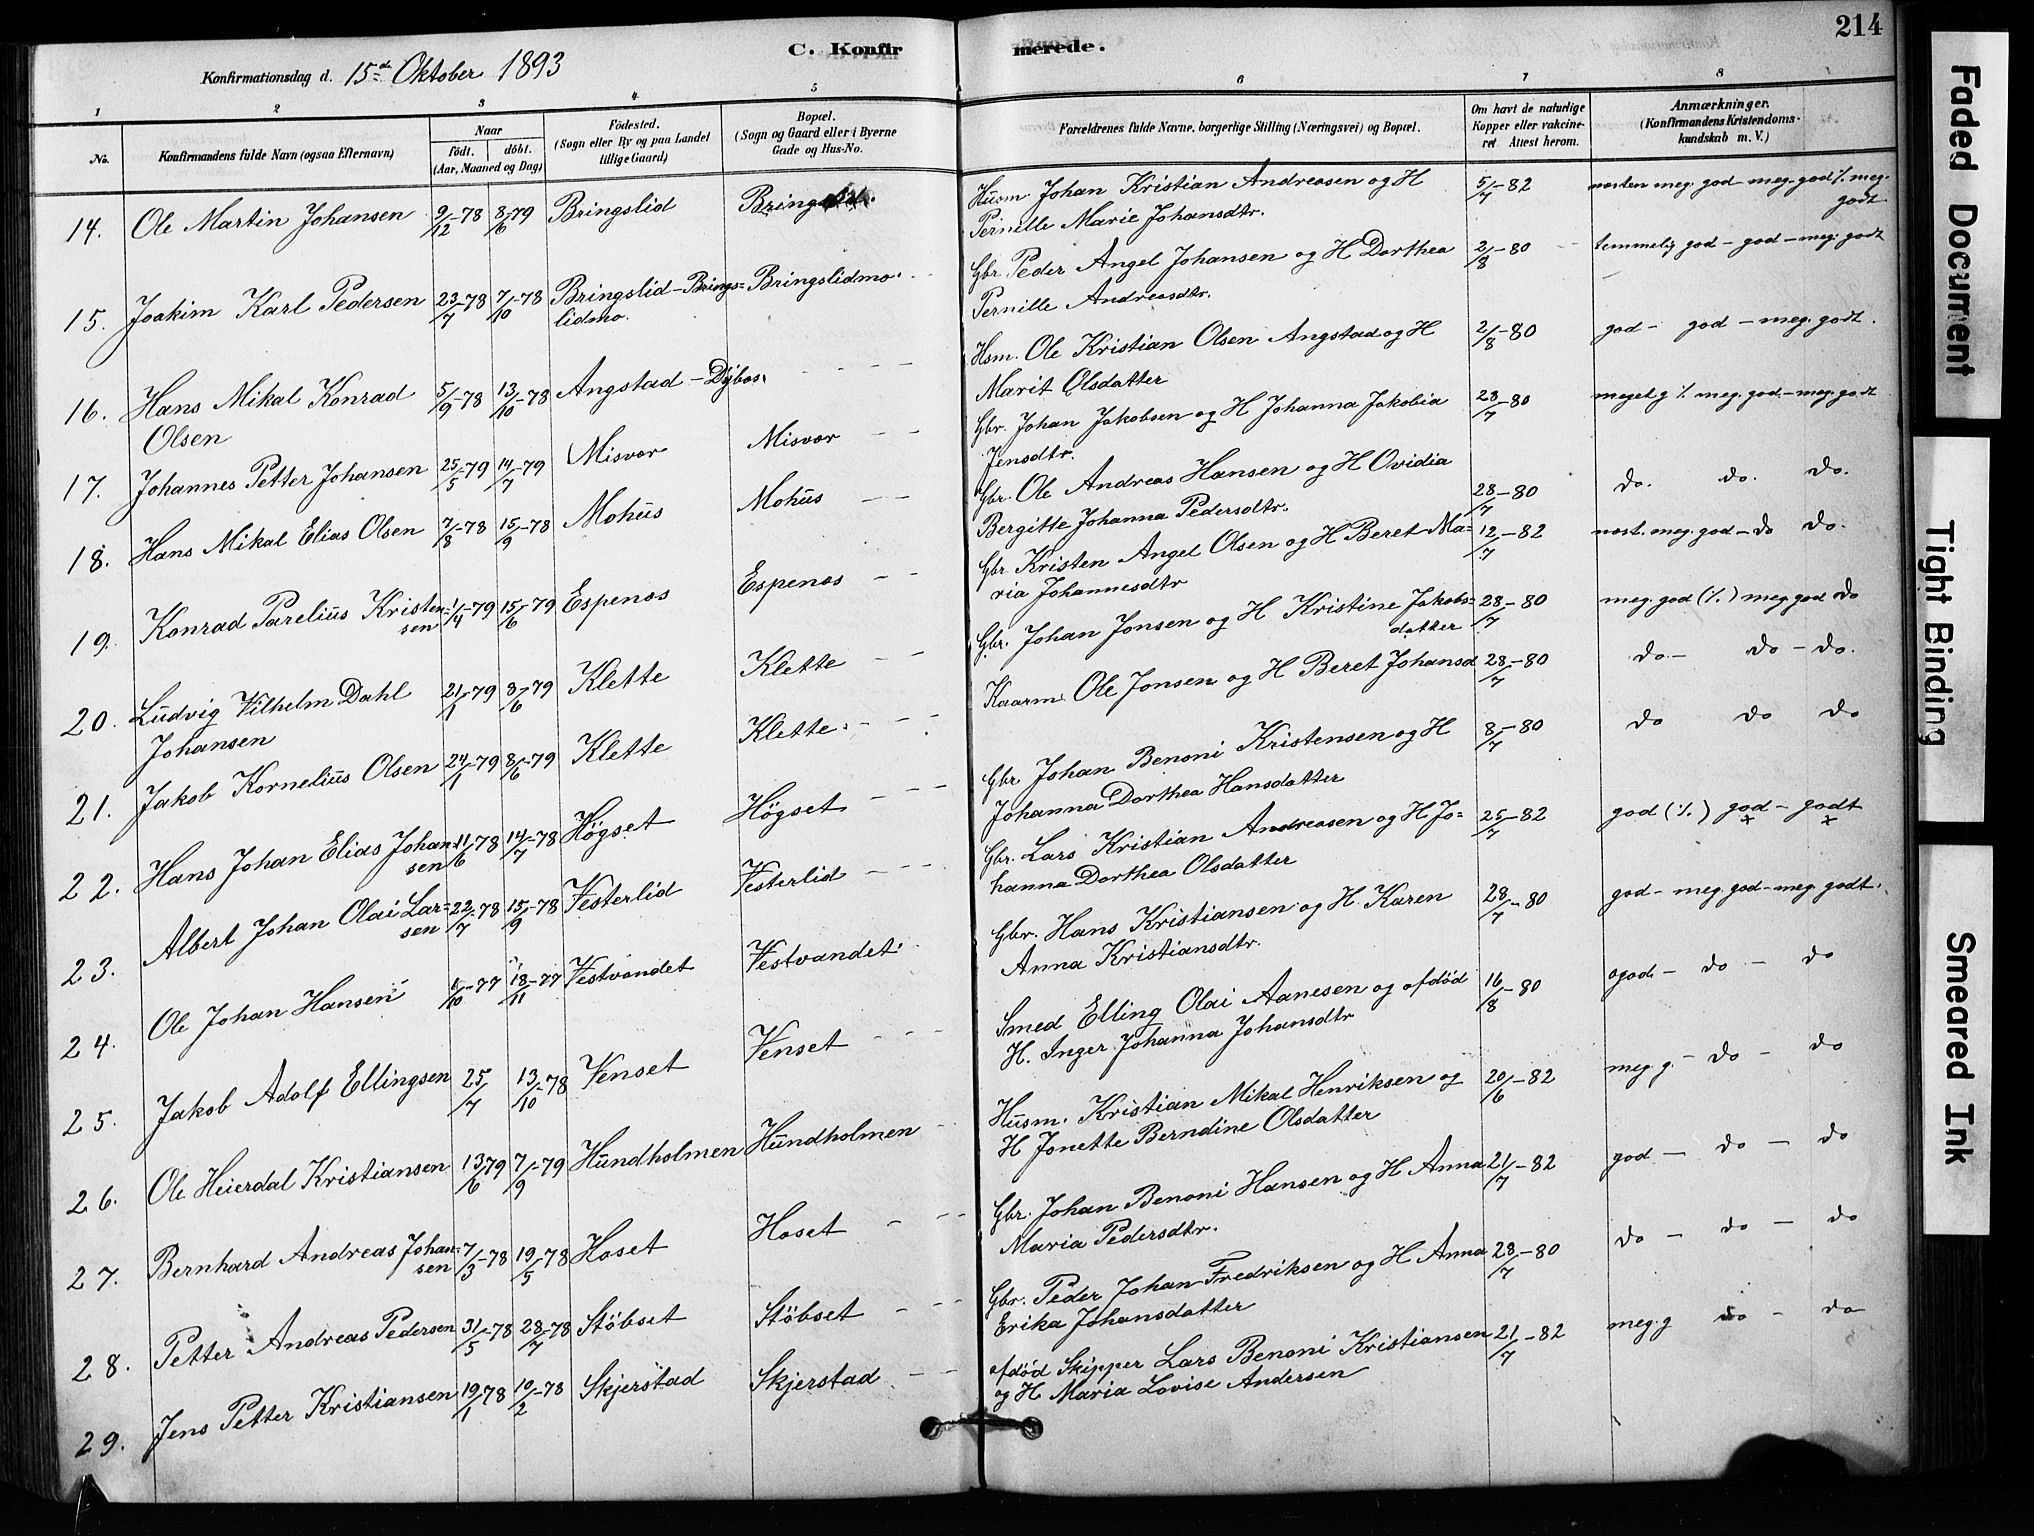 214
C. Konfirmerede.
Konfirmationsdag d. 15de Oktober 1893
1 2 3 4 5 6 7 8
No. Konfirmandens fulde Navn (ogsaa Efternavn) Naar födt. döbt. (Aar, Maaned og Dag) Födested. (Sogn eller By og paa Landet tillige Gaard) Bopæl. (Sogn og Gaard eller i Byerne Gade og Hus-No. Forældrenes fulde Navne, borgerlige Stilling (Næringsvei) og Bopæl. Om havt de naturlige Kopper eller vakcineret. Attest herom. Anmærkninger. (Konfirmandens Kristendomskundskab m. V.)
14. Ole Martin Johansen 9/12-78 8/6-79 Bringslid Husm. Johan Kristian Andreasen og H 5/7-82 næsten meg. god - meg. god % meg. godt
Pernille Marie Johansdtr.
15. Joakim Karl Pedersen 23/7-78 7/10-78 Bringslid - Brings= Bringslidmo. Gbr. Peder Angel Johansen og H Dorthea 2/8-80 temmelig god - god - meg. godt
lidmo. Pernille Andreasdtr.
16. Hans Mikal Konrad 5/9-78 13/10-78 Angstad - Dybos. Hsm. Ole Kristian Olsen Angstad og H 2/8-80 god - god - meg. godt.
Olsen Marit Olsdatter
17. Johannes Petter Johansen 25/5-79 14/7-79 Misvær Misvær Gbr. Johan Jakobsen og H Johanna Jakobia 28/7-80 meget g % meg. god - meg. godt
Jensdtr.
18. Hans Mikal Elias Olsen 7/8-78 15/9-78 Mohus Mohus Gbr. Ole Andreas Hansen og H Ovidia 28/7-80 do. do. do.
Bergitte Johanna Pedersdtr.
19. Konrad Parelius Kristen= 1/4-79 15/6-79 Espenes Espenes Gbr Kristen Angel Olsen og H Beret Ma= 12/7-82 næst. meg. god - do do.
sen ria Johannesdtr
20. Ludvig Vilhelm Dahl 21/1-79 8/6-79 Klette Klette Gbr. Johan Jonsen og H Kristine Jakobs= 28/7-80 meg. god (%) meg god do
Johansen datter
21. Jakob Kornelius Olsen 24/1-79 8/6-79 Klette Klette. Kaarm. Ole Jonsen og H Beret Johansd 28/7-80 do - do - do.
22. Hans Johan Elias Johan= 11/6-78 14/7-78 Högset Högset Gbr. Johan Benoni Kristensen og H 8/7-80 do do do
sen Johanna Dorthea Hansdatter
23. Albert Johan Olai Lar= 22/7-78 15/9-78 Vesterlid Vesterlid Gbr. Lars Kristian Andreasen og H Jo= 25/7-82 god (%) god - godt
sen hanna Dorthea Olsdatter
24. Ole Johan Hansen 18/11-77 Vestvandet Vestvandet Gbr. Hans Kristiansen og H. Karen 28/7-80 god - meg. god - meg. godt.
Anna Kristiansdtr.
25. Jakob Adolf Ellingsen 25/7 13/10-78 Venset Venset Smed Elling Olai Aanesen og afdød 16/8-80 god - do - do
H. Inger Johanna Johansdtr
26. Ole Heierdal Kristiansen 13/6 79 7/9-79 Hundholmen Hundholmen Husm. Kristian Mikal Henriksen og 20/6-82 meg. g. - do - do
H Jonette Berndine Olsdatter
27. Bernhard Andreas Johan= 7/3-78 19/5-78 Hoset Hoset Gbr. Johan Benoni Hansen og H Anna 21/7-82 god - do - do
sen Maria Pedersdtr.
28. Petter Andreas Pedersen 31/5-78 28/7-78 Støbset Støbset Gbr. Peder Johan Fredriksen og H Anna 28/7-80 do - do - do
Erika Johansdatter
29. Jens Petter Kristiansen 19/1 78 10/2-78 Skjerstad Skjerstad afdød Skipper Lars Benoni Kristiansen 21/7-82 meg. g do - do
og H Maria Lovise Andersen
Faded Document
Tight Binding
Smeared Ink